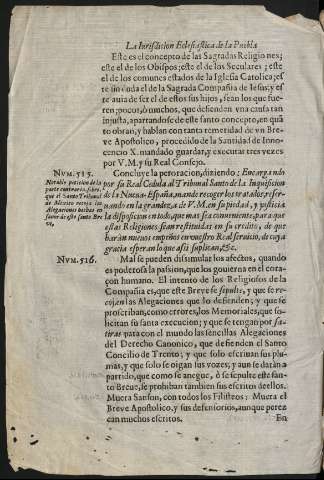 La Iurisdicion Eclesiastica de la Puebla
Este es el concepto de las Sagradas Religiones;
este el de los Obispos; este el de los Seculares; este
el de los comunes estados de la Iglesia Catolica; es
te sin duda el de la Sagrada Compañia de Iesus; y es
te auia de ser el de estos sus hijos, sean los que fue-
ren; pocos, ò muchos, que defienden vna causa tan
injusta, apartandose de este santo concepto, en quã
to obran, y hablan con tanta temeridad de vn Bre-
ve Apostolico, procedido de la Santidad de Inno-
cencio X. mandado guardar, y executar tres vezes
por V.M. y su Real Consejo.
NVM. 515.
Notable peticion de la
parte contraria, sobre
que el Santo Tribunal
de Mexico recoja las
Alegaciones hechas en
favor de este santo Bre
ve,
Concluye la peroracion, diziendo: Encargando
por su Real Cedula al Tribunal Santo de la Inquisicion
de la Nueva-España, mande recoger los tratados, reser-
uando en la grandeza de V.M. en su piedad, y justicia
la disposicion en todo, que mas sea conueniente, para que
estas Religiones sean restituidas en su credito, de que
haràn nueuos empeños en vuestro Real seruicio, de cuya
gracia esperan lo que assi suplican, &c.
NVM. 516.
Mal se pueden dissimular los afectos, quando
es poderosa la passion, que los gouierna en el cora-
çon humano. El intento de los Religiosos de la
Compañia es, que este Breue se sepulte, y que se re-
cojan las Alegaciones que lo defienden; y que se
proscriban, como errores, los Memoriales, que so-
licitan su santa execucion; y que se tengan por sa-
tiras para con el mundo las sencillas Alegaciones
del Derecho Canonico, que defienden el Santo
Concilio de Trento; y que solo escriuan sus plu-
mas, y que solo se oigan sus vozes; y aun se daràn a
partido, que como se anegue, ò se sepulte este san-
to Breue, se prohiban tambien sus escritos dellos.
Muera Sanson, con todos los Filisteos: Muera el
Breue Apostolico, y sus defensorios, aunque perez
can muchos escritos.
En